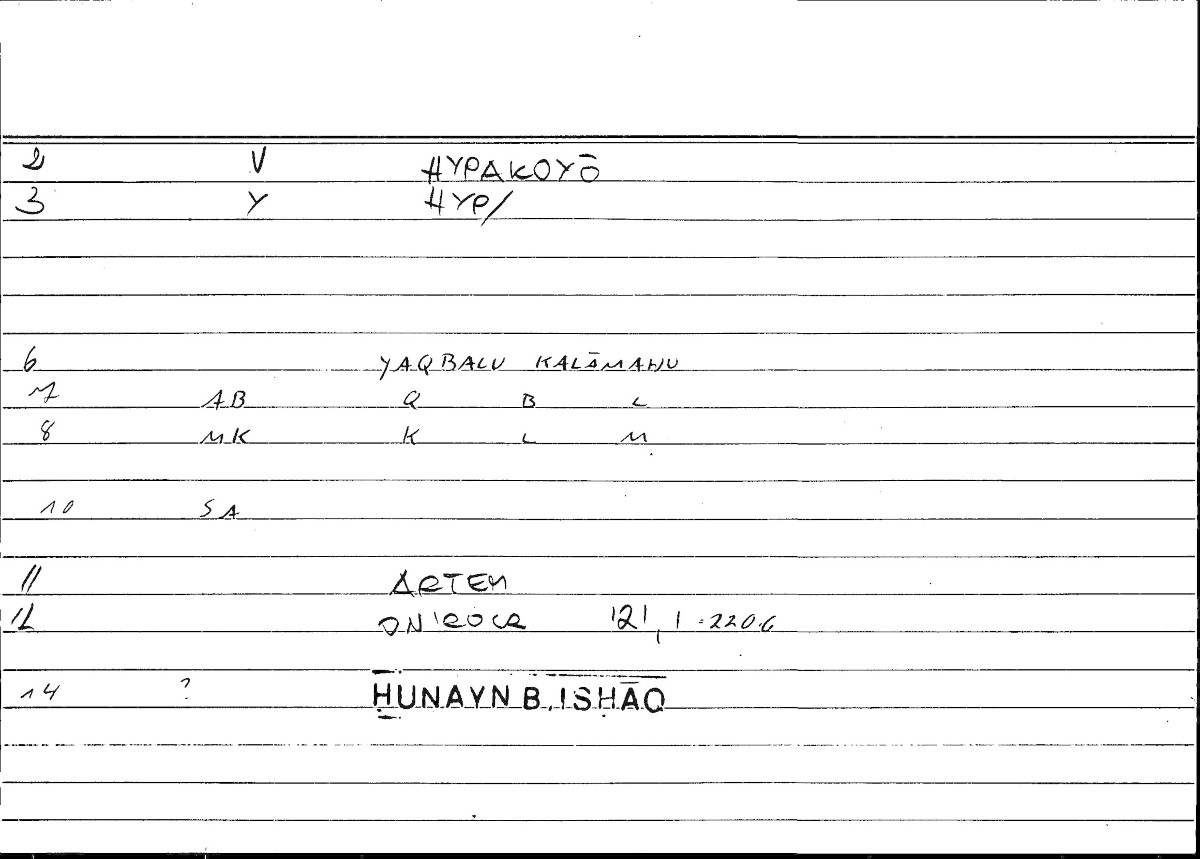 2 V HYPAKOYŌ
3 Y HYP/
6 YAQBALU KALĀMAHU
7 AB Q B L
8 MK K L M
10 SA
11 ARTEM
12 ONIROCR 121, 1 · 220.6
14 ? ḤUNAYN B. ISḤĀQ